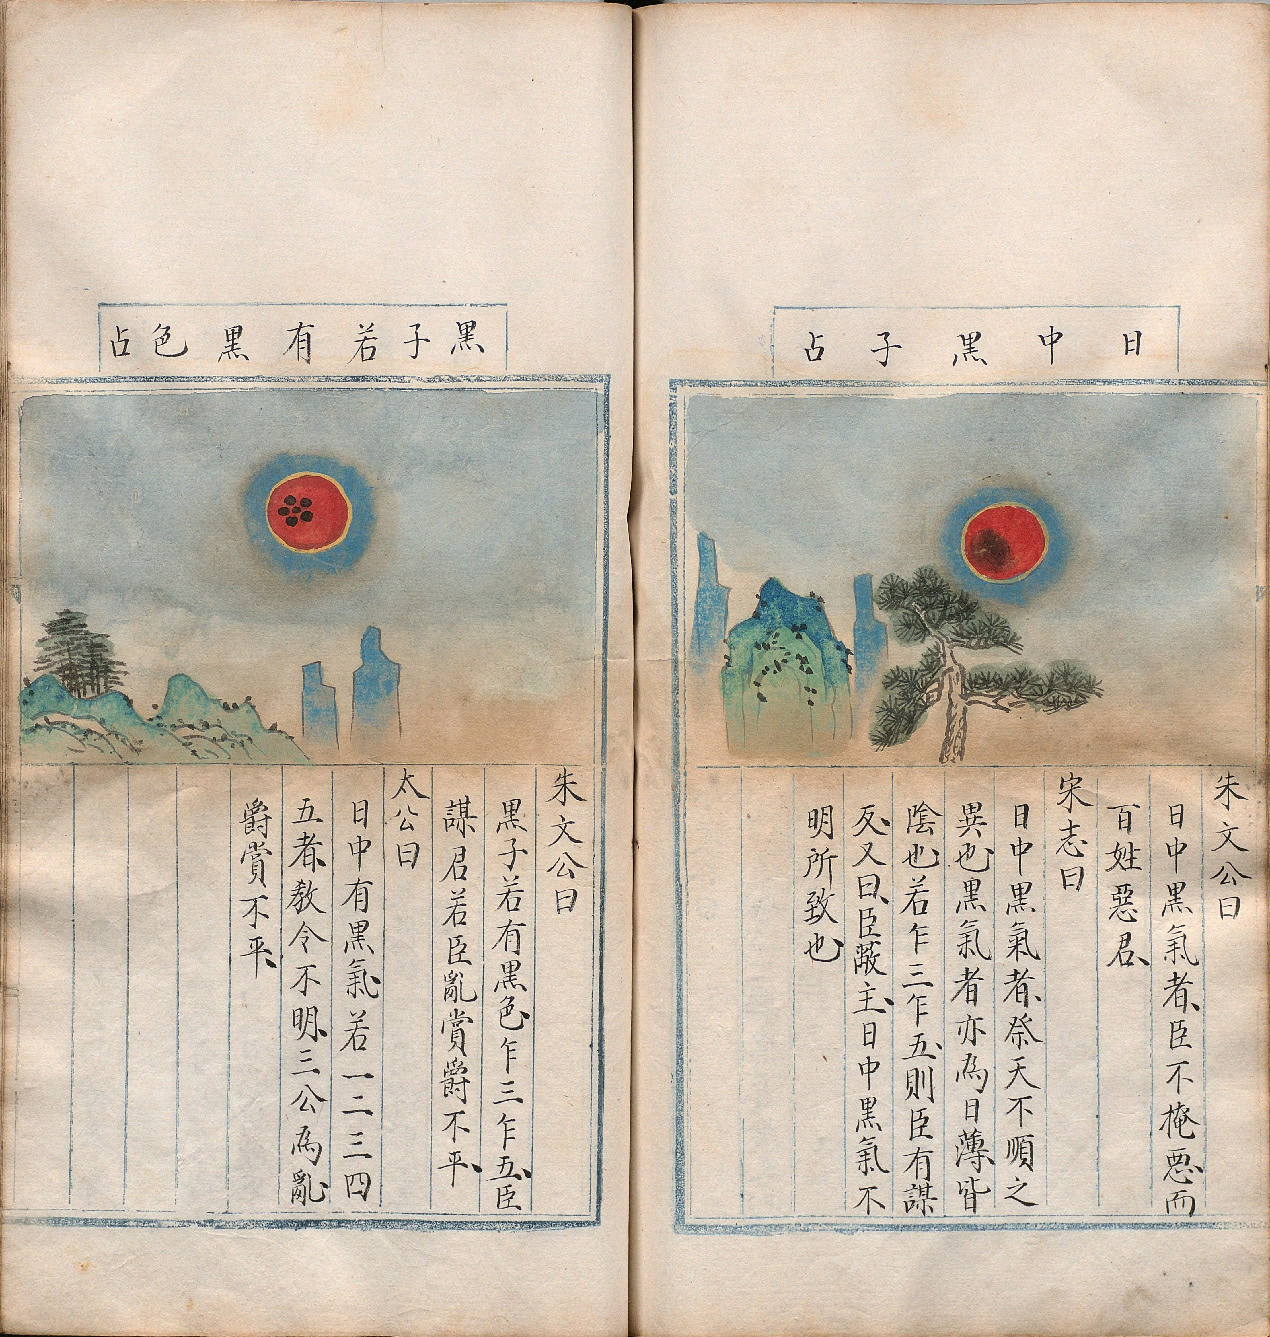 日中黑子占
朱文公曰
日中黑氣者臣不掩惡而
百姓惡君
宋志曰
日中黑氣者祭天不順之
異也黑氣者亦為日薄皆
陰也若乍三乍五則臣有謀
反又曰臣蔽主日中黑氣不
明所致也
黑子若有黑色占
朱文公曰
黑子若有黑色乍三乍五臣
謀君若臣亂賞爵不平
太公曰
日中有黑氣若一二三四
五者教令不明三公為亂
爵賞不平